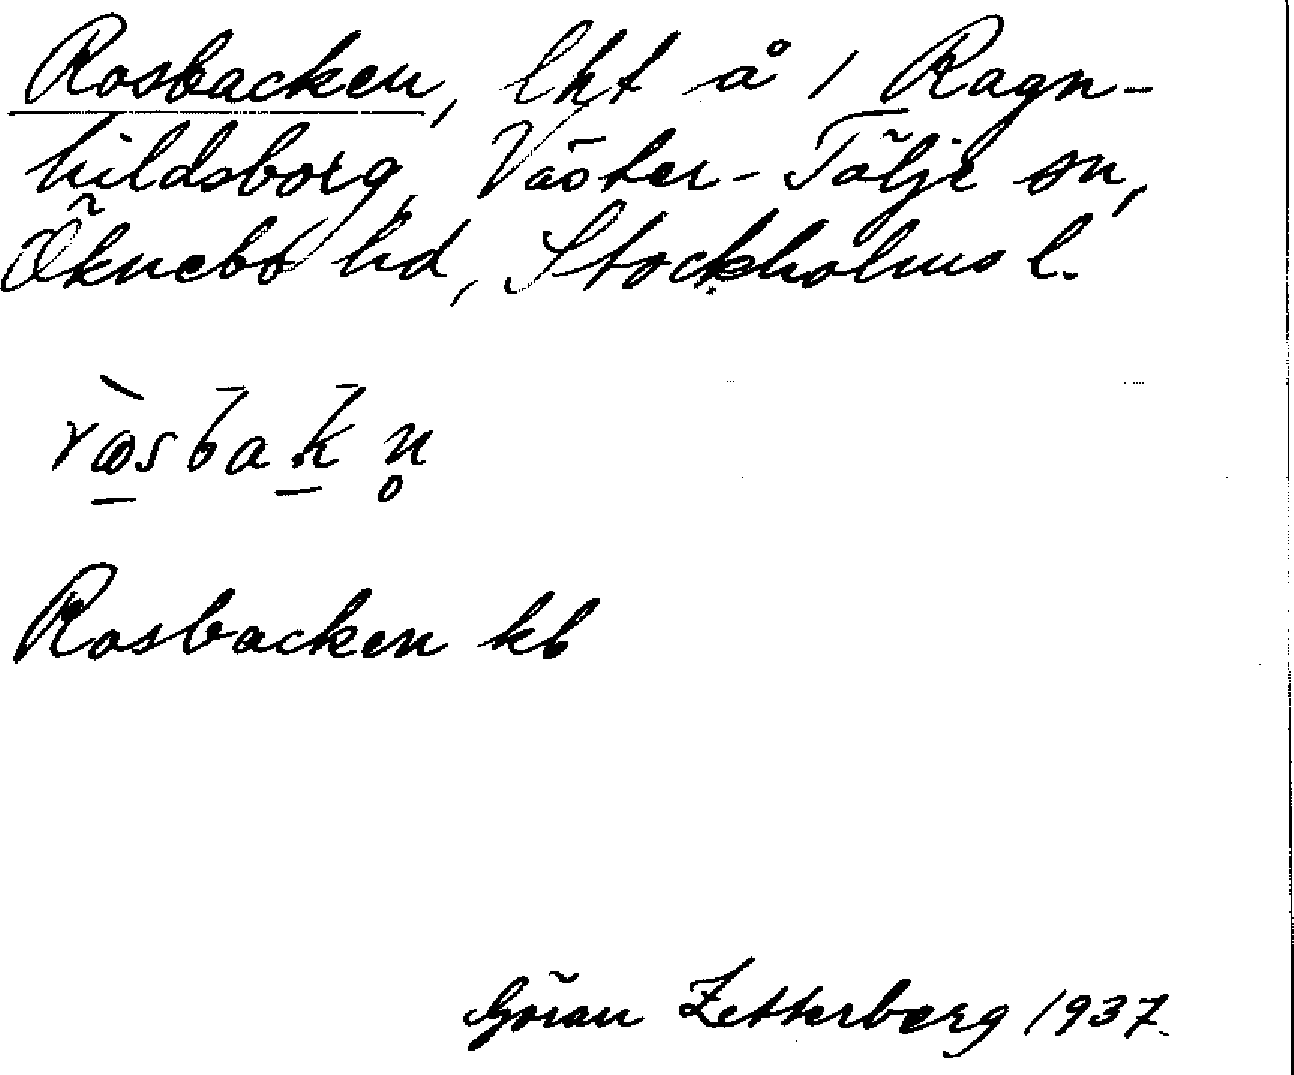 Rosbacken, lht å 1 Ragn-
hildsborg, Väster-Tälje sn,
Öknebo hd, Stockholms l.
Rosbacken kb
Göran Zetterberg 1937